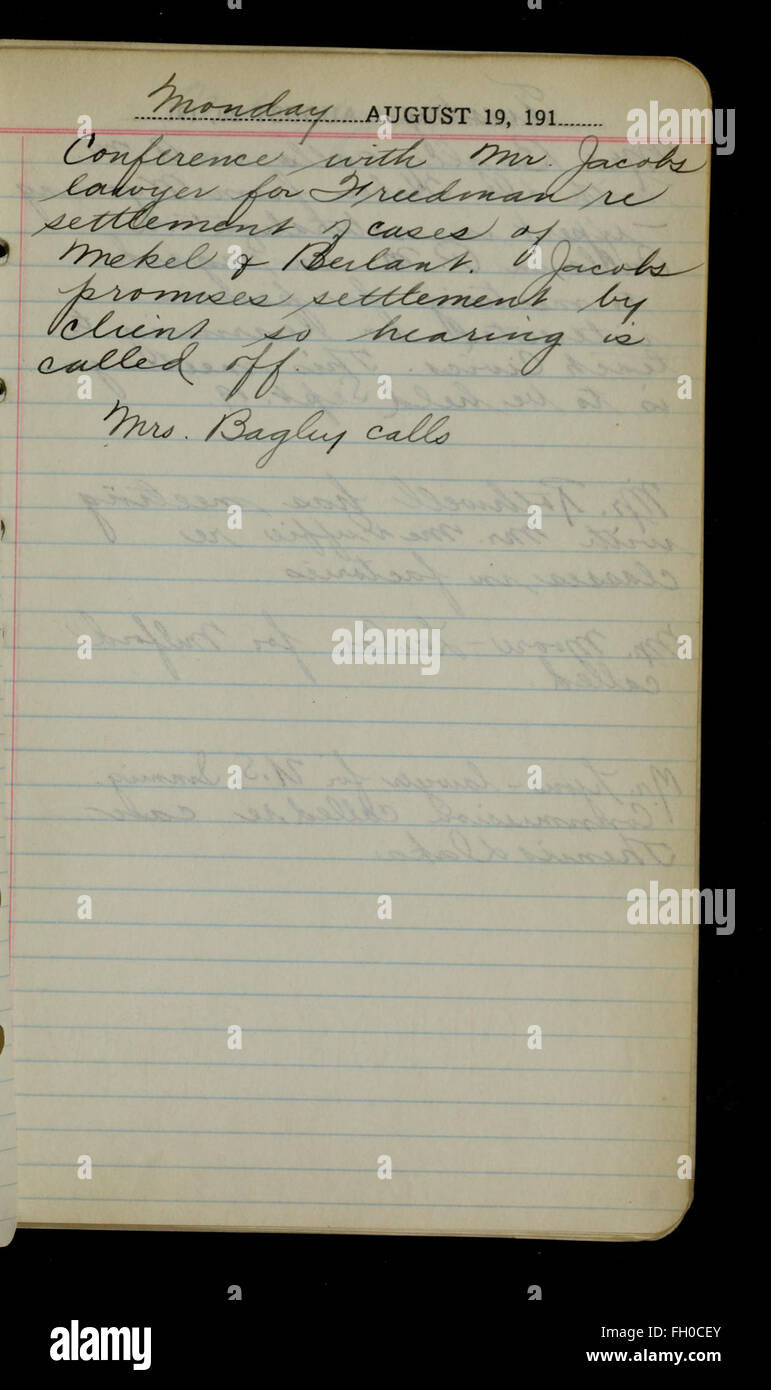 Monday AUGUST 19, 191
Conference with Mr. Jacobs
lawyer for Freedman re
settlement of cases of
Mekel & Berlant. Jacobs
promises settlement by
client so hearing is
called off.
Mrs. Bagley calls
alamy
alamy
a alamy stock photo
FH0CEY
www.alamy.com